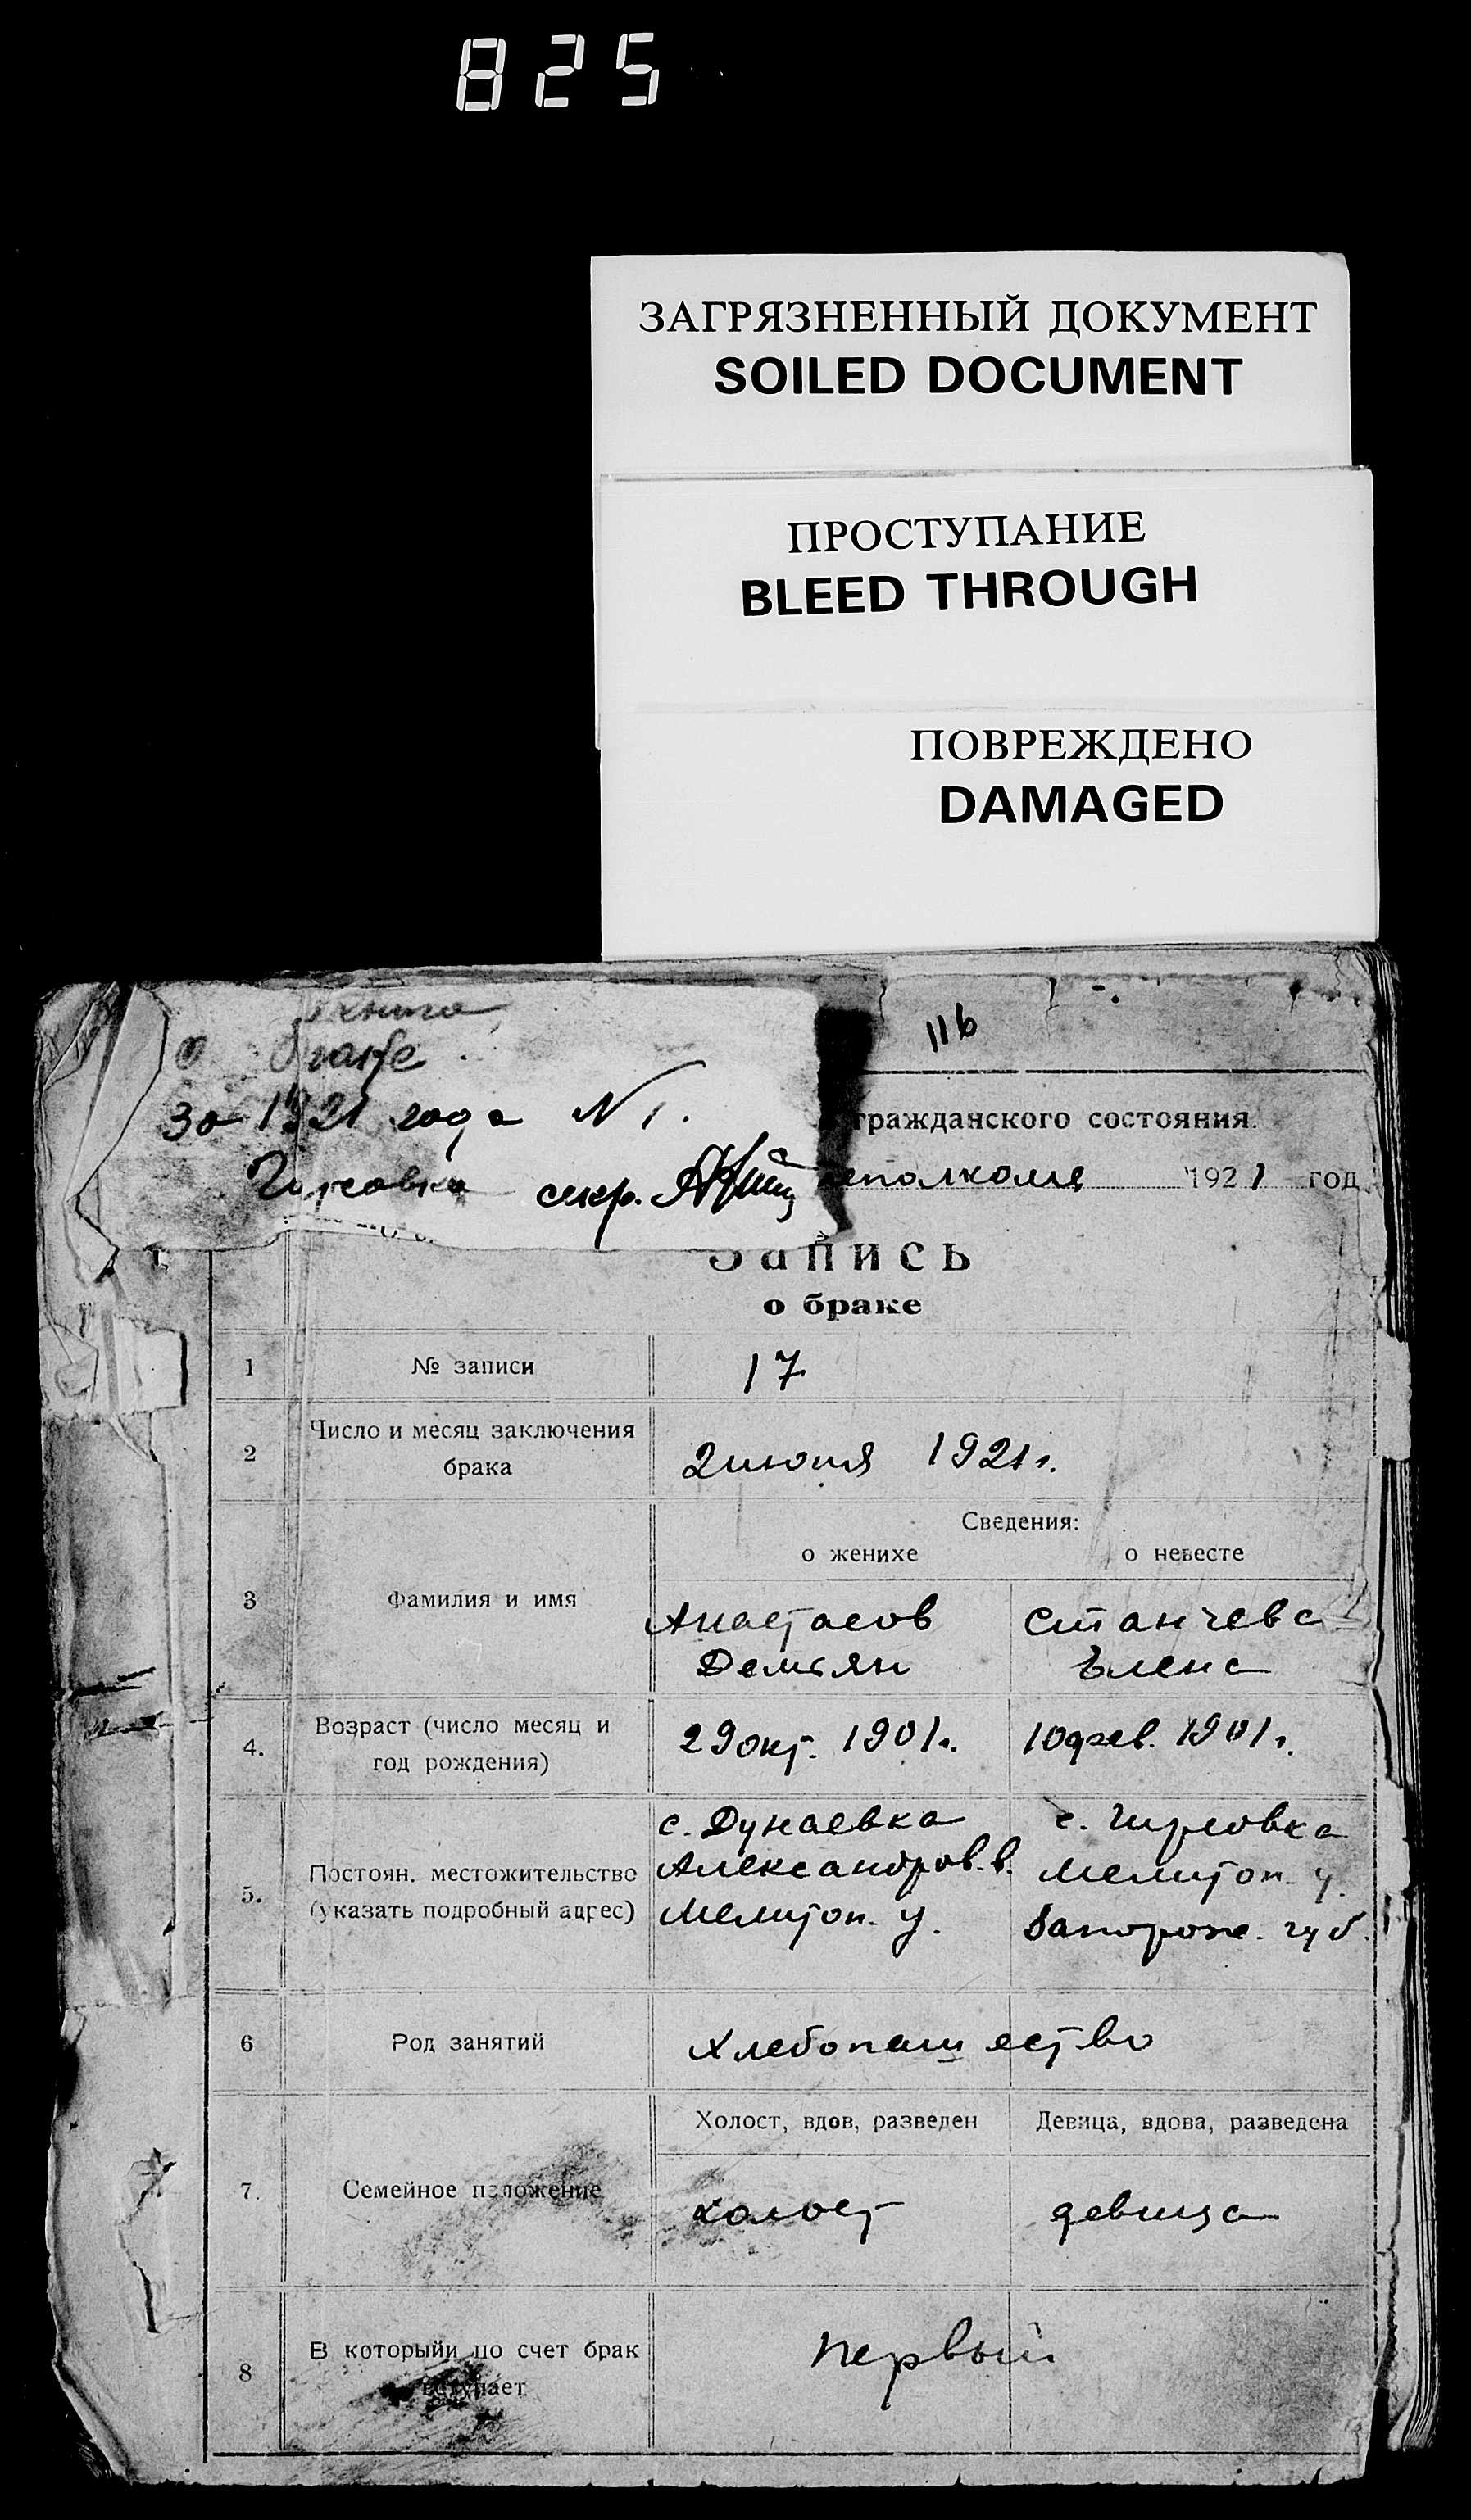 825
ЗАГРЯЗНЕННЫЙ ДОКУМЕНТ
SOILED DOCUMENT
ПРОСТУПАНИЕ
BLEED THROUGH
ПОВРЕЖДЕНО
DAMAGED
книга
о браке
за 1921 года N 1.
Гирсовка секр.
116
гражданского состояния.
исполкома 1921 год
Запись
о браке
1 № записи 17
2 Число и месяц заключения
брака
2 июня 1921 г.
Сведения:
о женихе о невесте
3 Фамилия и имя
Анастасов Станчева
Демьян Елена
4. Возраст (число месяц и
год рождения)
29 окт. 1901 г. 10 фев. 1901 г.
5. Постоян. местожительство
(указать подробный адрес)
с. Дунаевка с. Гирсовка
Александров. в. Мелитоп. у.
Мелитоп. у. Запорож. губ.
6 Род занятий Хлебопашество
Холост, вдов, разведен Девица, вдова, разведена
7. Семейное положение холост девица
8 В которыйи по счет брак
вступает
первый